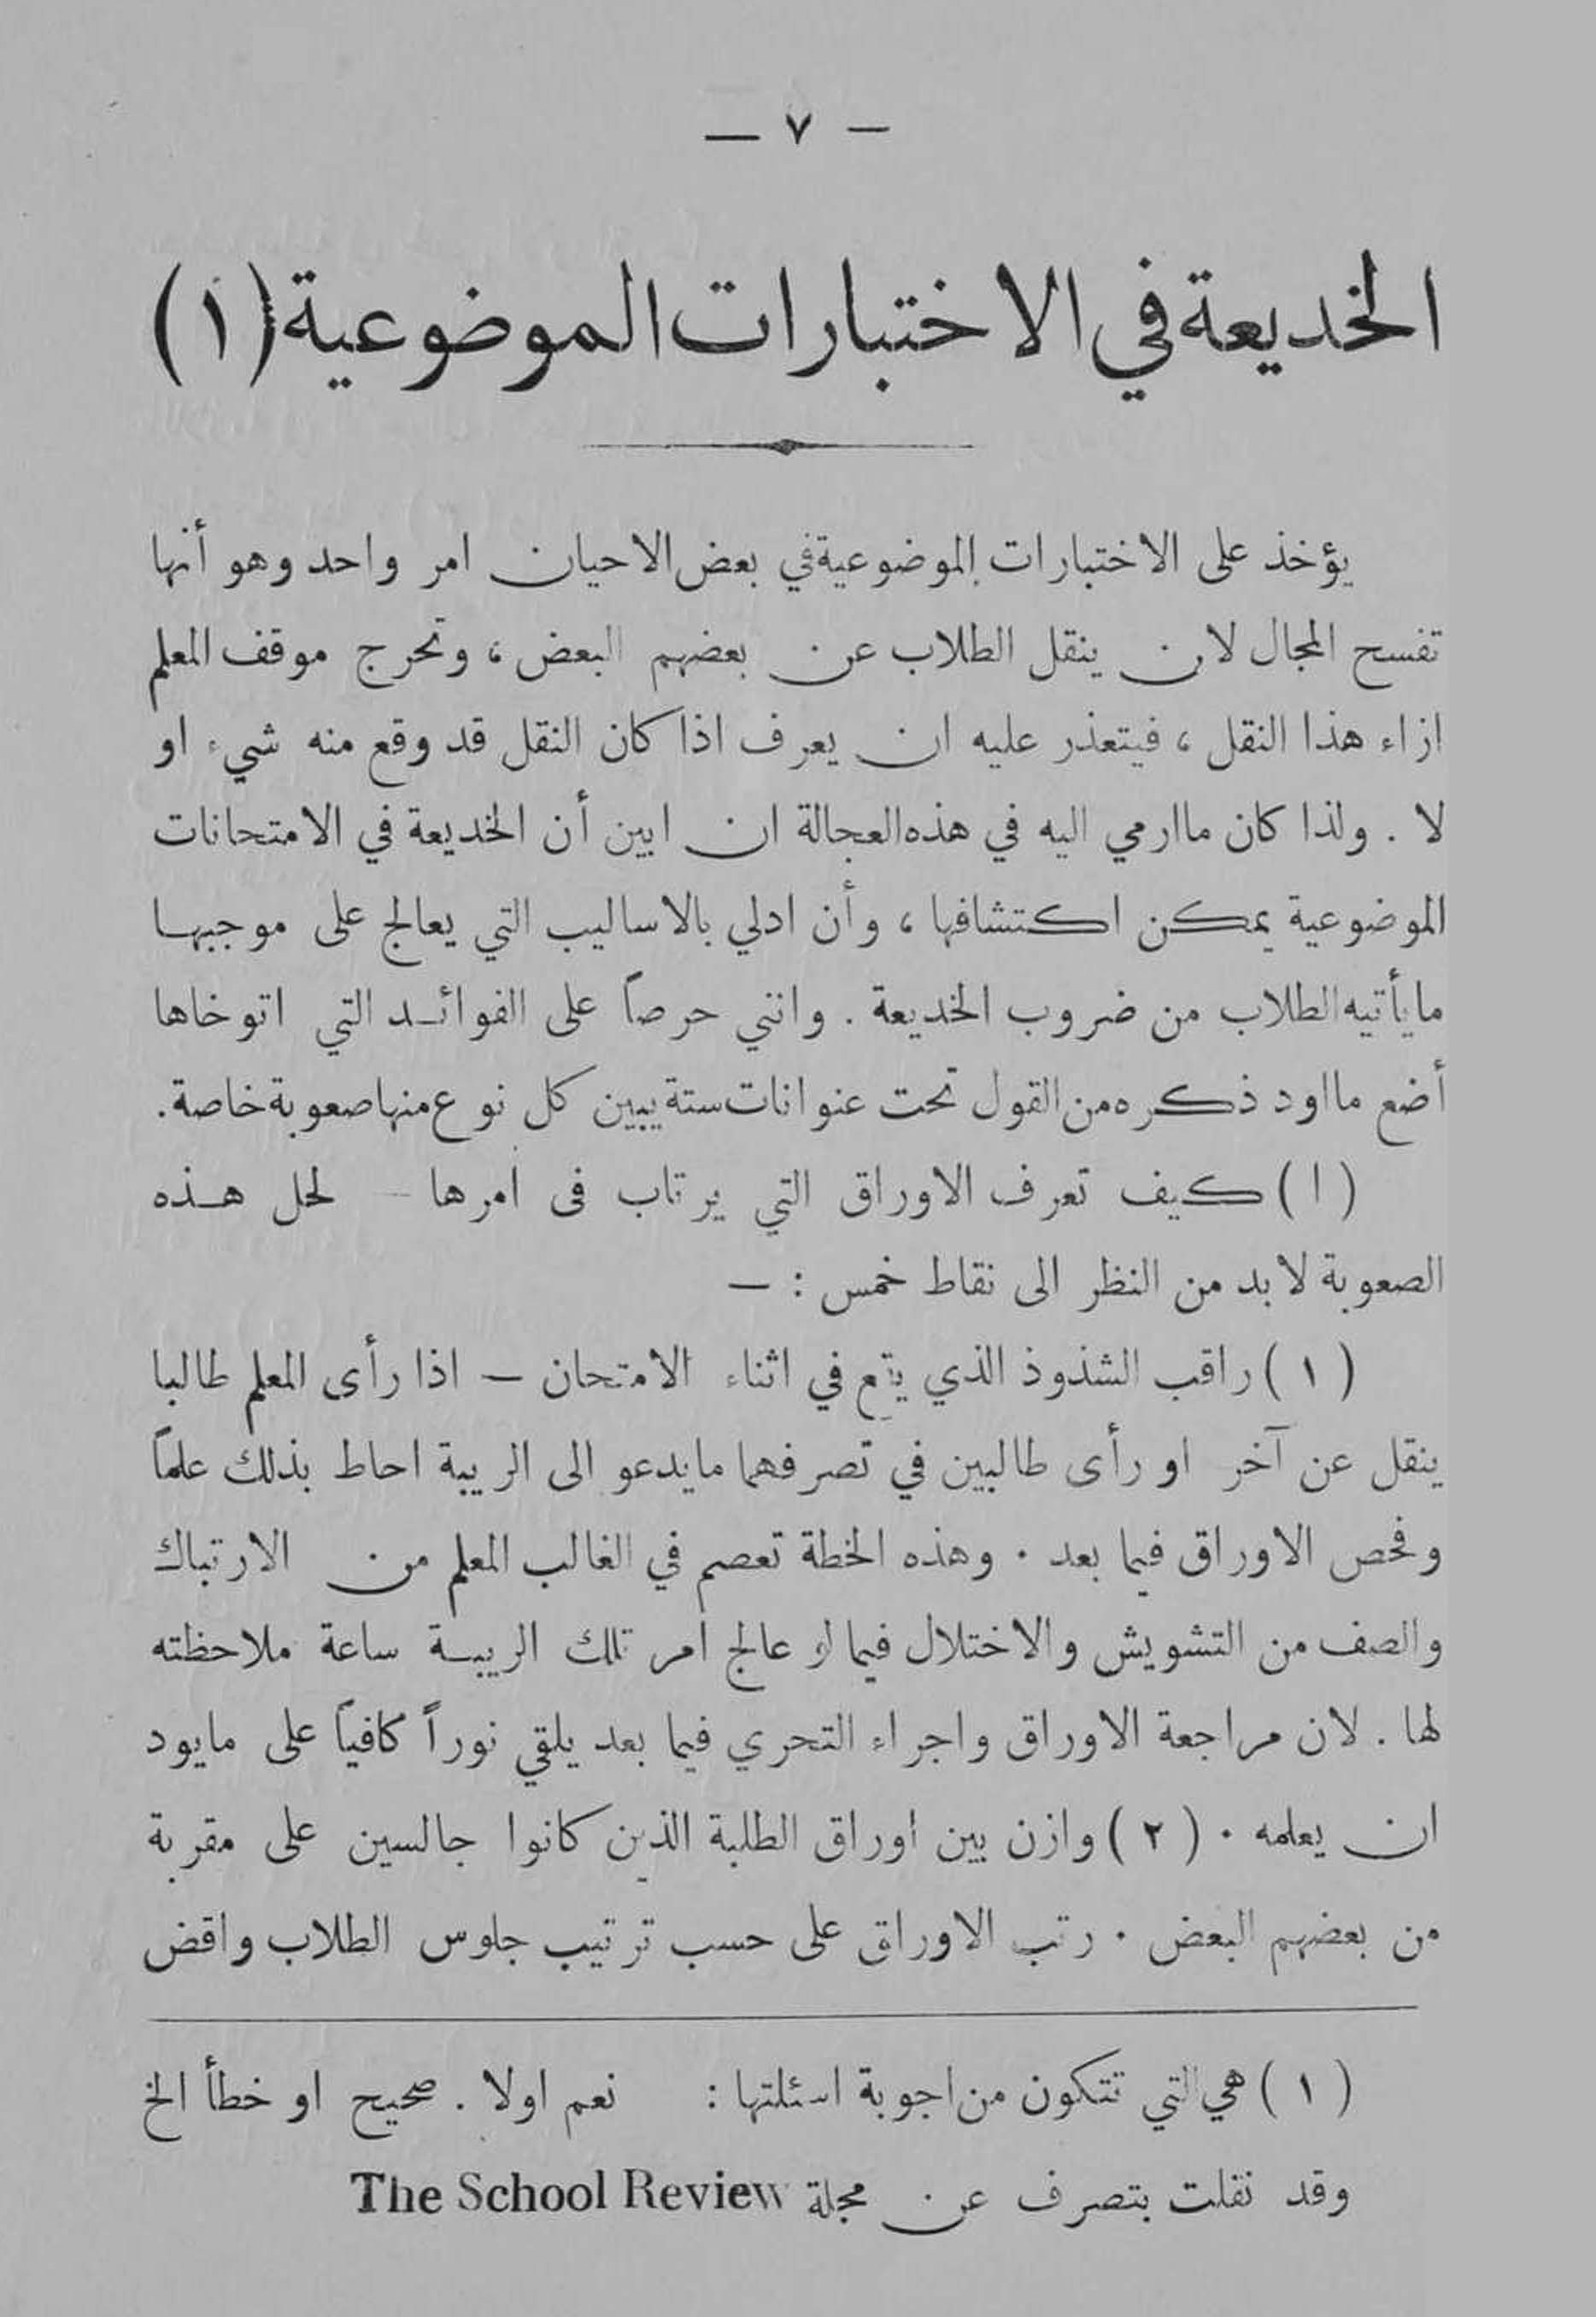 — ٧ —
الخديعة في الاختبارات الموضوعية (١)
يؤخذ على الاختبارات الموضوعية في بعض الاحيان امر واحد وهو أنها
تفسح المجال لان ينقل الطلاب عن بعضهم البعض ، وتحرج موقف المعلم
ازاء هذا النقل ، فيتعذر عليه ان يعرف اذا كان النقل قد وقع منه شيء او
لا . ولذا كان ما ارمي اليه في هذه العجالة ان ابين أن الخديعة في الامتحانات
الموضوعية يمكن اكتشافها ، وأن ادلي بالاساليب التي يعالج على موجبها
ما يأتيه الطلاب من ضروب الخديعة . وانني حرصاً على الفوائد التي اتوخاها
أضع ما اود ذكره من القول تحت عنوانات ستة يبين كل نوع منها صعوبة خاصة .
( ا ) كيف تعرف الاوراق التي يرتاب فى امرها – لحل هذه
الصعوبة لا بد من النظر الى نقاط خمس : —
( ١ ) راقب الشذوذ الذي يقع في اثناء الامتحان — اذا رأى المعلم طالبا
ينقل عن آخر او رأى طالبين في تصرفهما ما يدعو الى الريبة احاط بذلك علماً
وفحص الاوراق فيما بعد . وهذه الخطة تعصم في الغالب المعلم من الارتباك
والصف من التشويش والاختلال فيما لو عالج امر تلك الريبة ساعة ملاحظته
لها . لان مراجعة الاوراق واجراء التحري فيما بعد يلقي نوراً كافياً على ما يود
ان يعلمه . ( ٢ ) وازن بين اوراق الطلبة الذين كانوا جالسين على مقربة
من بعضهم البعض . رتب الاوراق على حسب ترتيب جلوس الطلاب واقض
( ١ ) هي التي تتكون من اجوبة اسئلتها : نعم اولا . صحيح او خطأ الخ
وقد نقلت بتصرف عن مجلة The School Review